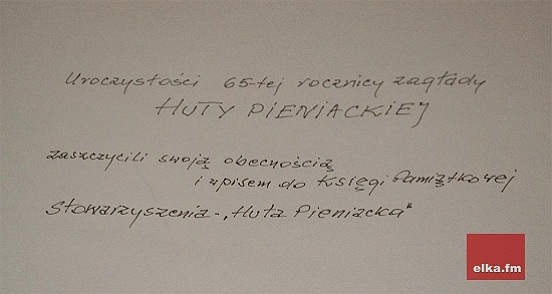 Uroczystości 65-tej rocznicy zagłady
HUTY PIENIACKIEJ
zaszczycili swoją obecnością
i wpisem do Księgi Pamiątkowej
Stowarzyszenia - „Huta Pieniacka"
elka.fm